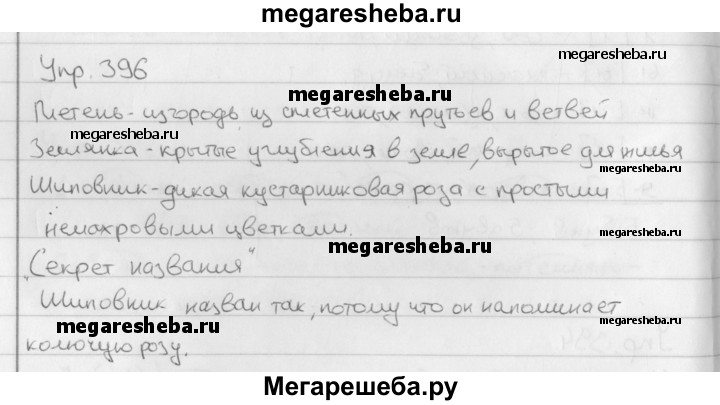 megaresheba.ru
Упр. 396
megaresheba.ru
Плетень - изгородь из сплетенных прутьев и ветвей
megaresheba.ru
megaresheba.ru
Землянка - крытые углубления в земле, вырытое для жилья
megaresheba.ru
Шиповник - дикая кустарниковая роза с простыми
немахровыми цветками.
megaresheba.ru
„Секрет названия“
Шиповник назван так, потому что он напоминает
megaresheba.ru
megaresheba.ru
колючую розу.
Мегарешеба.ру